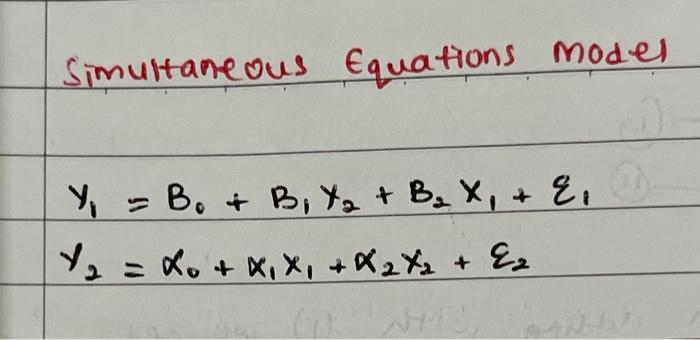 Simultaneous Equations model
Y₁ = B₀ + B₁ Y₂ + B₂ X₁ + ε₁
Y₂ = α₀ + α₁ X₁ + α₂ X₂ + ε₂